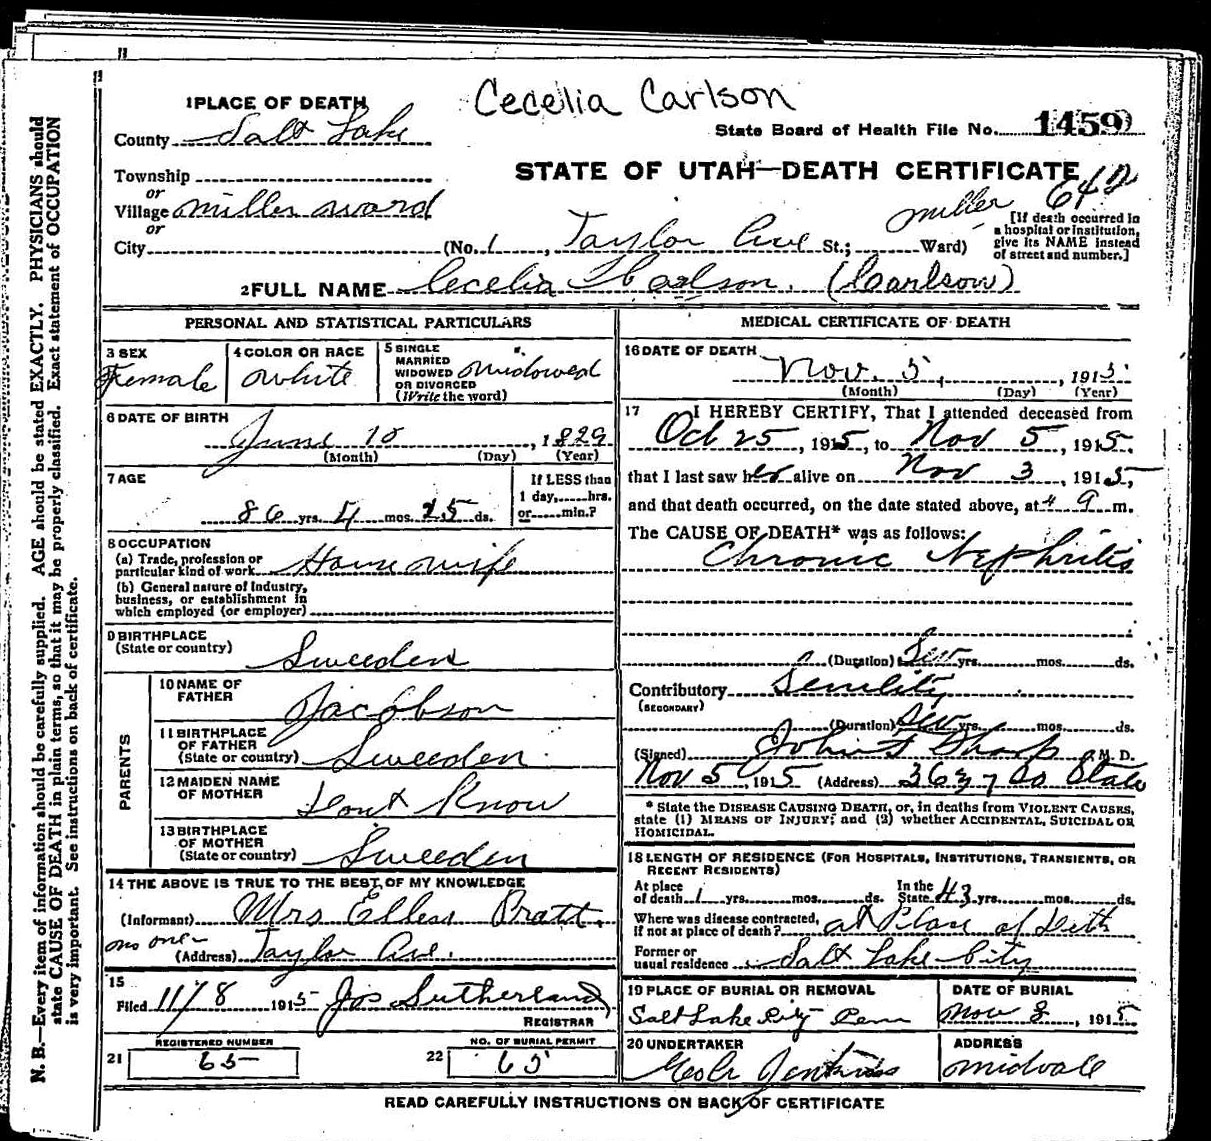 Cecelia Carlson
1 PLACE OF DEATH
County Salt Lake
State Board of Health File No. 1459
Township
STATE OF UTAH—DEATH CERTIFICATE
or
Village Miller Ward
or
City (No. 1, Taylor Ave St.; Miller Ward)
[If death occurred in
a hospital or institution,
give its NAME instead
of street and number.]
2 FULL NAME Cecelia Carlson. (Carlson)
PERSONAL AND STATISTICAL PARTICULARS
3 SEX
Female
4 COLOR OR RACE
White
5 SINGLE
MARRIED
WIDOWED
OR DIVORCED
(Write the word)
Widowed
6 DATE OF BIRTH
June 10, 1829
(Month) (Day) (Year)
7 AGE
86 yrs. 4 mos. 25 ds.
If LESS than
1 day, hrs.
or min.?
8 OCCUPATION
(a) Trade, profession or
particular kind of work Housewife
(b) General nature of industry,
business, or establishment in
which employed (or employer)
9 BIRTHPLACE
(State or country)
Sweeden
PARENTS
10 NAME OF
FATHER
Jacobson
11 BIRTHPLACE
OF FATHER
(State or country) Sweeden
12 MAIDEN NAME
OF MOTHER
Dont Know
13 BIRTHPLACE
OF MOTHER
(State or country) Sweeden
14 THE ABOVE IS TRUE TO THE BEST OF MY KNOWLEDGE
(Informant) Mrs Ellen Pratt
no one
(Address) Taylor Ave.
15
Filed 11/8 1915 Jos Sutherland
REGISTRAR
REGISTERED NUMBER
21 65
NO. OF BURIAL PERMIT
22 65
MEDICAL CERTIFICATE OF DEATH
16 DATE OF DEATH
Nov. 5, 1915
(Month) (Day) (Year)
17 I HEREBY CERTIFY, That I attended deceased from
Oct 25, 1915, to Nov 5, 1915,
that I last saw her alive on Nov 3, 1915,
and that death occurred, on the date stated above, at 9 m.
The CAUSE OF DEATH* was as follows:
Chronic Nephritis
(Duration) Sev yrs. mos. ds.
Contributory Senility
(SECONDARY)
(Duration) Sev yrs. mos. ds.
(Signed) John F Sharp M. D.
Nov 5, 1915 (Address) 3637 So State
* State the DISEASE CAUSING DEATH, or, in deaths from VIOLENT CAUSES,
state (1) MEANS OF INJURY; and (2) whether ACCIDENTAL, SUICIDAL OR
HOMICIDAL.
18 LENGTH OF RESIDENCE (FOR HOSPITALS, INSTITUTIONS, TRANSIENTS, OR
RECENT RESIDENTS)
At place
of death 1 yrs. mos. ds.
In the
State 43 yrs. mos. ds.
Where was disease contracted,
if not at place of death? at Place of Deth
Former or
usual residence Salt Lake City
19 PLACE OF BURIAL OR REMOVAL
Salt Lake City
DATE OF BURIAL
Nov 8, 1915
20 UNDERTAKER
Jenkins
ADDRESS
Midvale
READ CAREFULLY INSTRUCTIONS ON BACK OF CERTIFICATE
N. B.—Every item of information should be carefully supplied. AGE should be stated EXACTLY. PHYSICIANS should
state CAUSE OF DEATH in plain terms, so that it may be properly classified. Exact statement of OCCUPATION
is very important. See instructions on back of certificate.